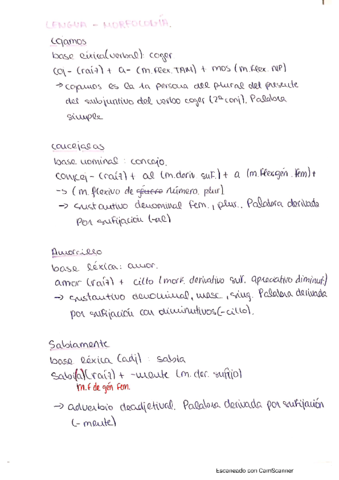 LENGUA - MORFOLOGÍA
cojamos
base léxica (verbal): coger
coj- (raíz) + a- (m. flex. TAM) + mos (m. flex. NP)
→ cojamos es la 1a persona del plural del presente
del subjuntivo del verbo coger (2ª conj). Palabra
simple
concejalas
base nominal: concejo.
concej- (raíz) + al (m. deriv suf.) + a (m. flex gén. Fem) +
-s (m. flexivo de número, plur)
→ sustantivo denominal fem., plur. Palabra derivada
por sufijación (-al)
Amorcillo
base léxica: amor.
amor (raíz) + cillo (morf. derivativo suf. apreciativo diminut)
→ sustantivo denominal, masc, sing. Palabra derivada
por sufijación con diminutivos (-cillo).
Sabiamente
base léxica (adj): sabia
sabi(a) (raíz) + -mente (m. der. sufijo)
m. F de gén fem.
→ adverbio deadjetival. Palabra derivada por sufijación
(-mente)
Escaneado con CamScanner